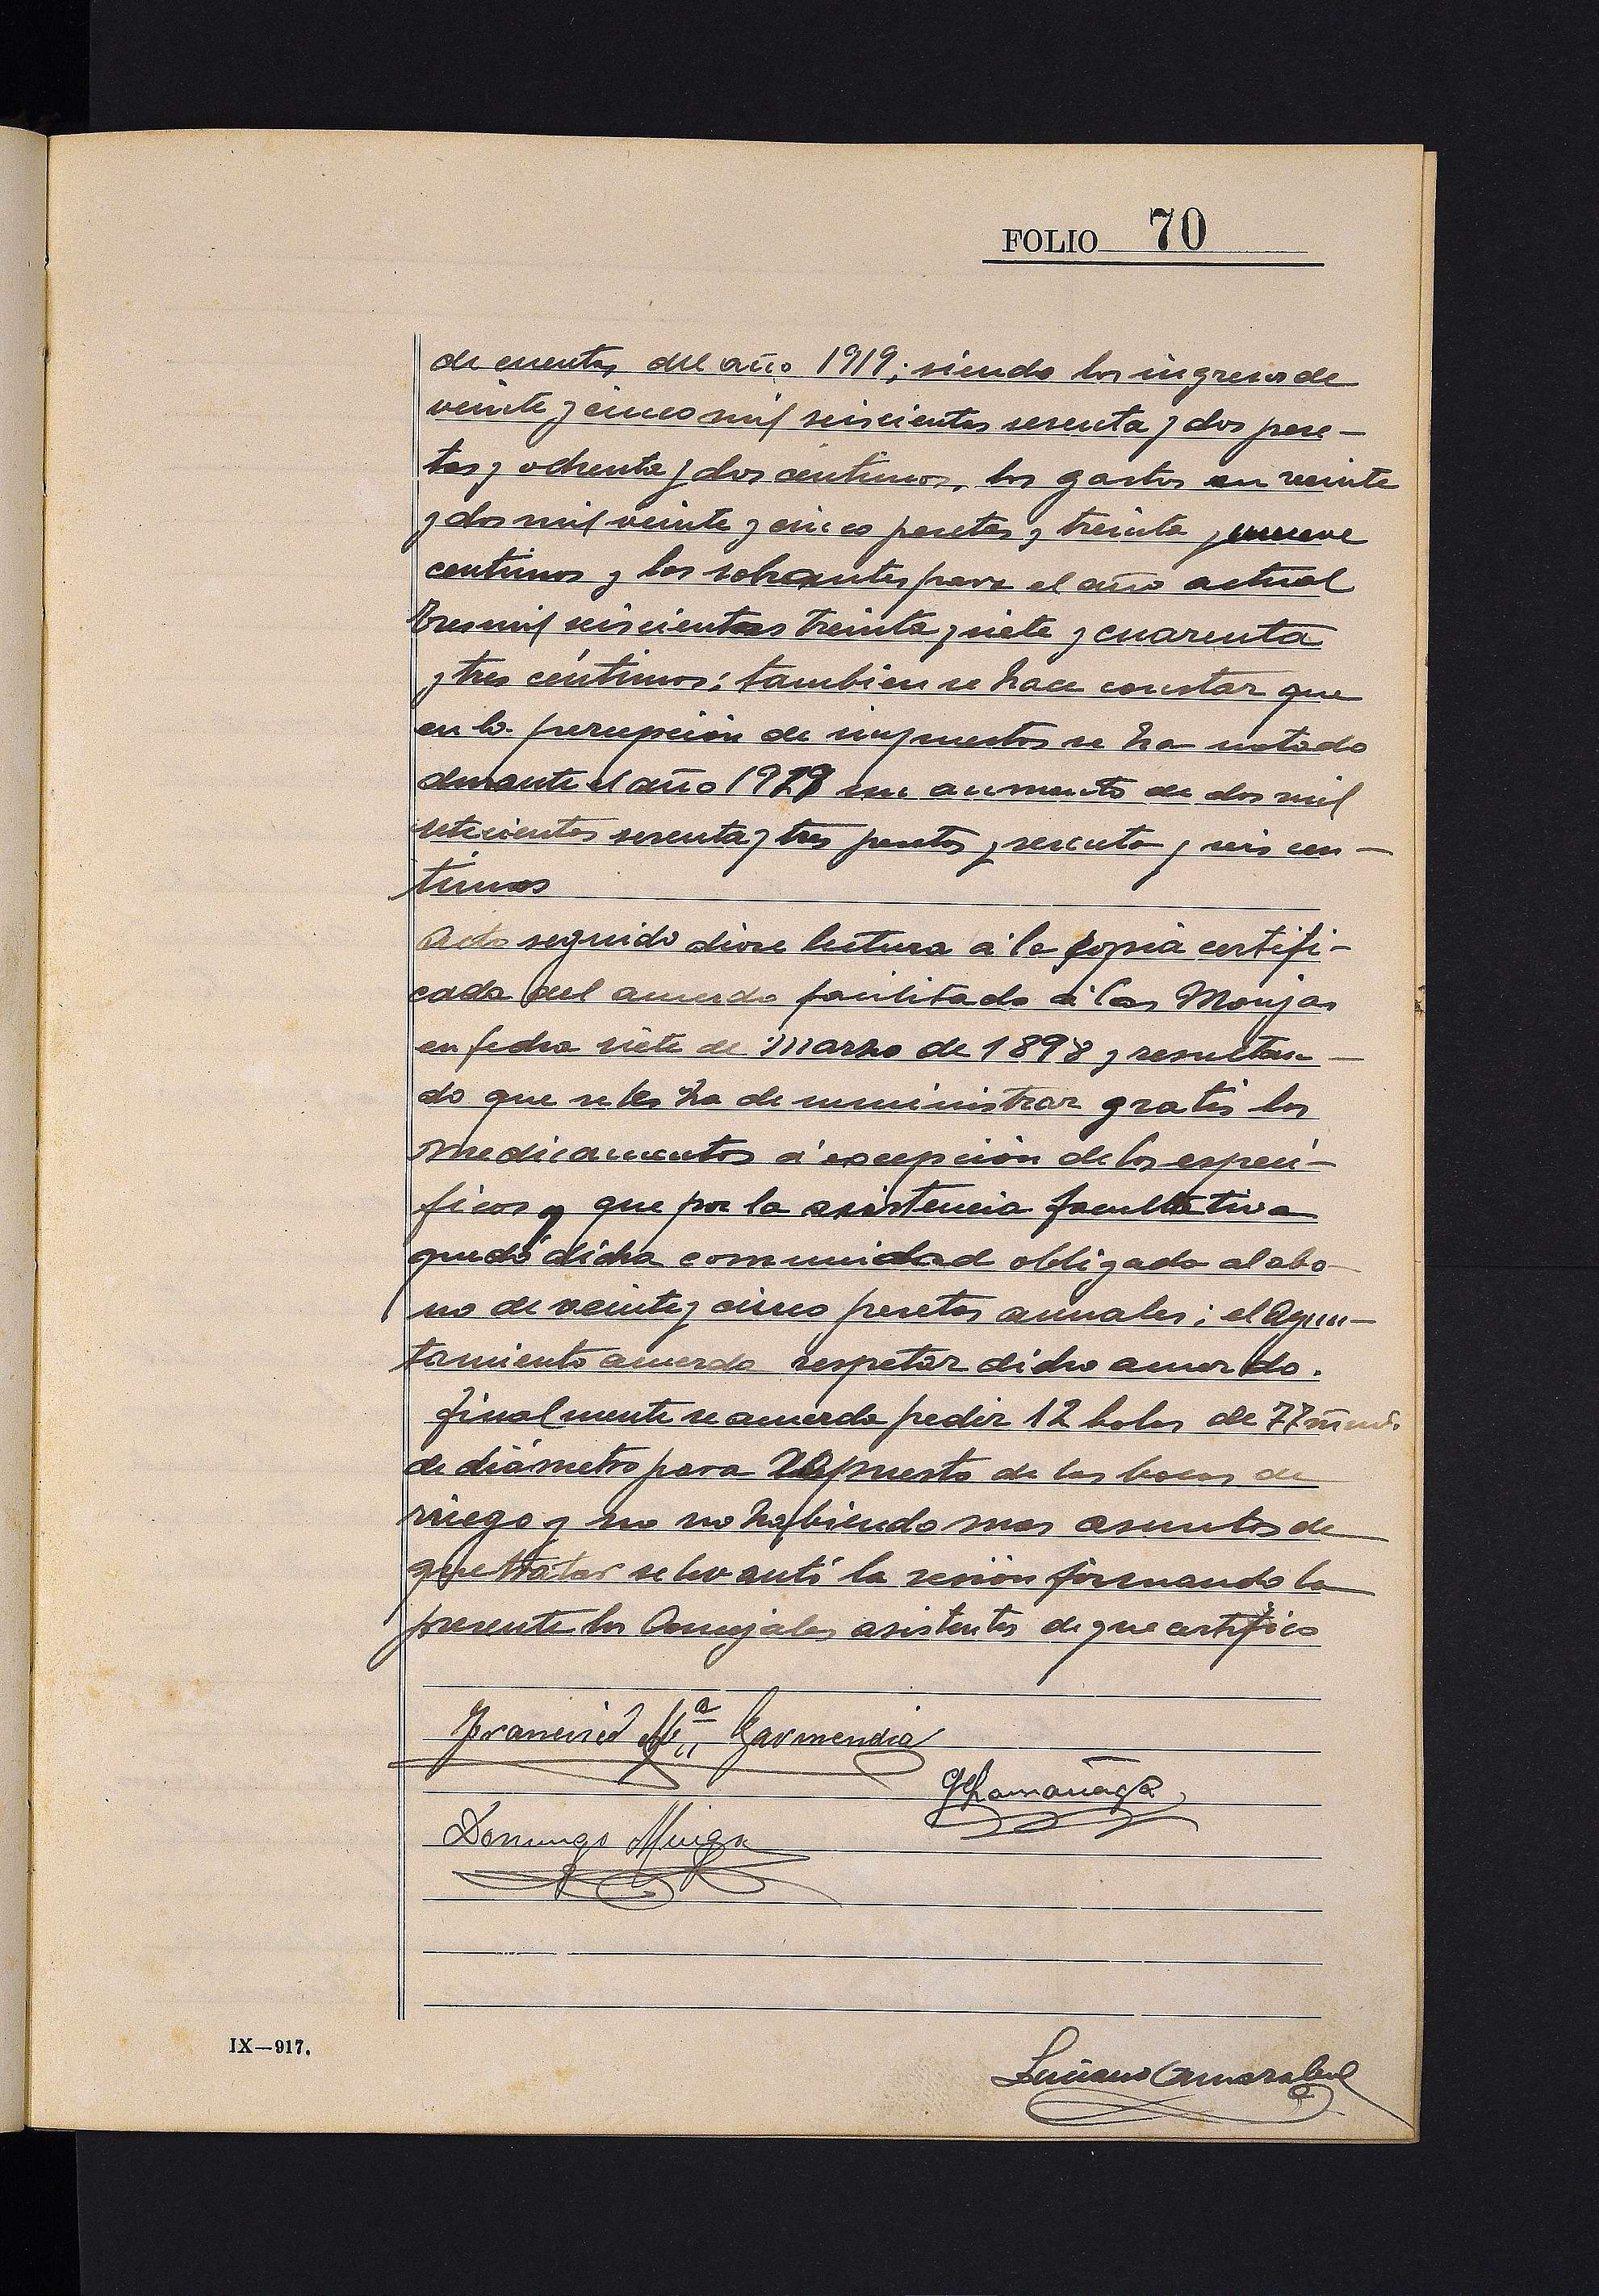 FOLIO 70
de cuentas del año 1919; siendo los ingresos de
veinte y cinco mil seiscientas sesenta y dos pese-
tas y ochenta y dos centimos, los gastos en veinte
y dos mil veinte y cinco pesetas y treinta y nueve
centimos y los sobrantes para el año actual
tres mil seiscientas treinta y siete y cuarenta
y tres céntimos; tambien se hace constar que
en la percepción de impuestos se ha notado
durante el año 1919 un aumento de dos mil
setecientas sesenta y tres pesetas y sesenta y seis cen-
timos
Acto seguido diose lectura á la copia certifi-
cada del acuerdo facilitado á las Monjas
en fecha siete de Marzo de 1898 y resultan-
do que se les ha de suministrar gratis los
medicamentos á excepción de los especi-
ficos y que por la asistencia facultativa
quedó dicha comunidad obligada al abo-
no de veinte y cinco pesetas anuales; el Ayun-
tamiento acuerda respetar dicho acuerdo.
Finalmente se acuerda pedir 12 bolas de 77
de diámetro para repuesto de las bocas de
riego y no no habiendo mas asuntos de
que tratar se levantó la sesión firmando la
presente los Concejales asistentes de que certifico
Francisco Mª Garmendia
Domingo Muga
IX—917.
Luciano